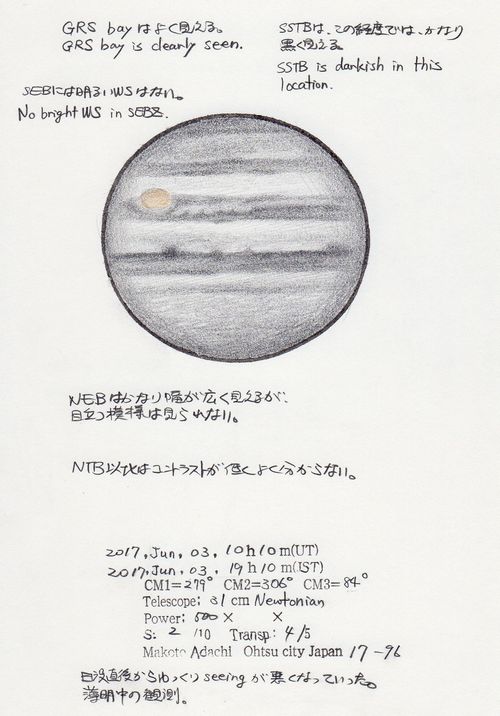 GRS bay はよく見える。
GRS bay is clearly seen.
SSTBは、この経度では、かなり
黒く見える。
SSTB is darkish in this
location.
SEBには明るいWSはない。
No bright WS in SEBZ.
NEBはかなり幅が広く見えるが、
目立つ模様は見られない。
NTB以北はコントラストが低くよく分からない。
2017, Jun, 03, 10h10m(UT)
2017, Jun, 03, 19h10m(JST)
CM1=279° CM2=306° CM3=84°
Telescope: 31 cm Newtonian
Power: 500× ×
S: 2 /10 Transp: 4/5
Makoto Adachi Ohtsu city Japan 17-96
日没直後からゆっくりseeingが悪くなっていった。
薄明中の観測。